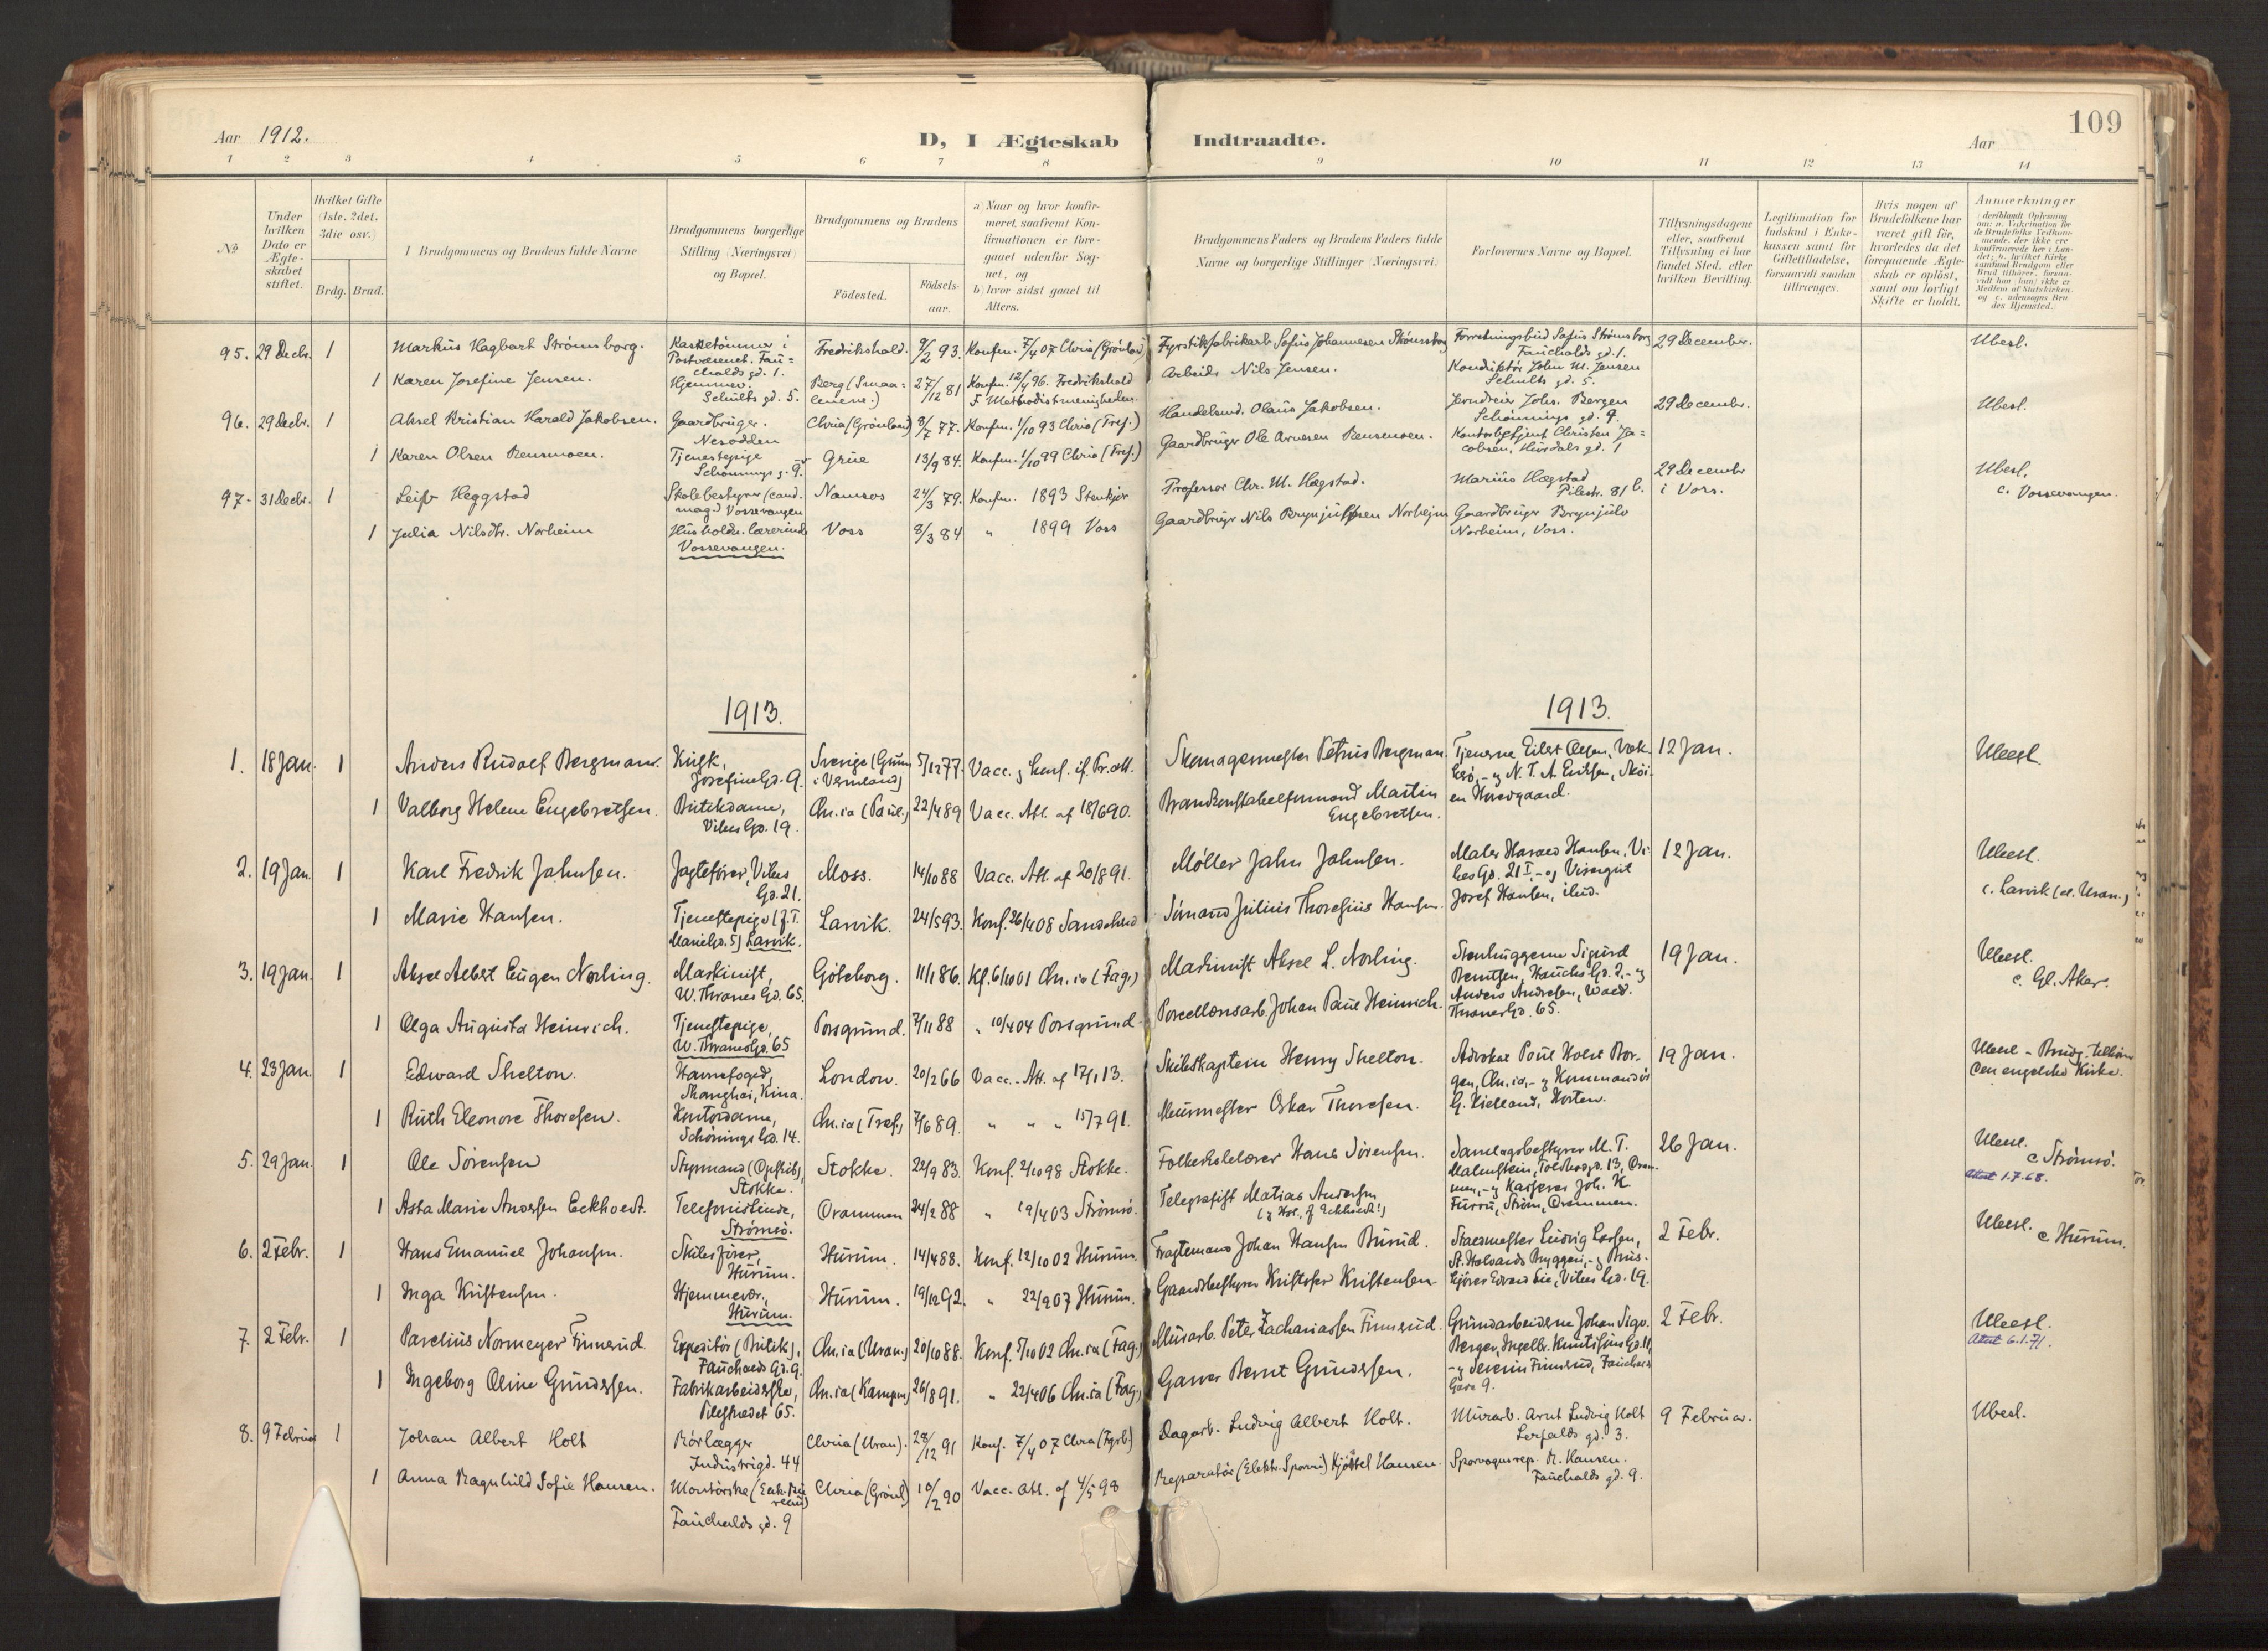 109
Aar 1912.
D, I Ægteskab Indtraadte.
Aar
1 2 3 4 5 6 7 8 9 10 11 12 13 14
No
Under hvilken Dato er Ægteskabet stiftet.
Hvilket Gifte (1ste, 2det, 3die osv.)
Brdg. Brud.
Brudgommens og Brudens fulde Navne
Brudgommens borgerlige Stilling (Næringsvei) og Bopæl.
Brudgommens og Brudens
Fødested.
Fødselsaar.
a) Naar og hvor konfirmeret, saafremt Konfirmationen er foregaaet udenfor Sognet, og
b) hvor sidst gaaet til Alters.
Brudgommens Faders og Brudens Faders fulde Navne og borgerlige Stillinger (Næringsvei).
Forlovernes Navne og Bopæl.
Tillysningsdagene eller, saafremt Tillysning ei har fundet Sted, efter hvilken Bevilling.
Legitimation for Indskud i Enkekassen samt for Giftetilladelse, forsaavidt saadan tiltrænges.
Hvis nogen af Brudefolkene har været gift før, hvorledes da det foregaaende Ægteskab er opløst, samt om lovligt Skifte er holdt.
Anmærkninger
95. 29 Decbr. 1 Markus Hagbart Strömsborg. Kassetömmer i Postvæsenet. Fauchalds gd. 1. Fredrikshald. 9/2 93. Konfm. 7/4 07 Chria (Grönland) Fyrstikfabrikarb. Sofus Johannesen Strömsborg Forretningsbud Sofus Strömsborg Fauchalds gd. 1. 29 December. Ubesl.
1 Karen Josefine Jensen. Hjemmev. Schults gd. 5. Berg (Smaalenene.) 27/12 81 Konfm. 12/4 96. Fredrikshald F. Methodistmenigheden. Arbeider Nils Jensen. Konduktör John M. Jensen Schults gd. 5.
96. 29 Decbr. 1 Aksel Kristian Harald Jakobsen. Gaardbruger. Nesodden Chria (Grönland) 8/7 77. Konfm. 1/10 93 Chria (Tref.) Handelsmd. Olaus Jakobsen. Johs. Bergen Schönnings gd. 9. 29 December. Ubesl.
1 Karen Olsen Rensmoen. Tjenestepige Schönnings g. 9. Grue 13/9 84. Konfm. 1/10 99 Chria (Tref.) Gaardbruger Ole Arnesen Rensmoen. Kontorbetjent Christen Jacobsen, Hurdals gd. 1
97. 31 Decbr. 1 Leif Heggstad Skolebestyrer (cand. mag.) Vossevangen Namsos 24/3 79. Konfm. 1893 Stenkjer Professor Chr. M. Hægstad. Marius Hægstad Pilestr. 81 b. 29 Decembr i Vors. Ubesl. c. Vossevangen.
1 Julia Nilsdtr. Norheim Husholdn. lærerinde Vossevangen. Voss 8/3 84 " 1899 Voss Gaardbruger Nils Brynjulfsen Norheim Gaardbruger Brynjulv Norheim, Voss.
1913. 1913.
1. 18 Jan. 1 Anders Rudolf Bergman. Kusk, Josefine Gd. 9. Sverige (Grums i Vermland) 5/12 77. Vacc. & Konf. if. Pr. att. Skomagermester Petrus Bergman. Tjenerne Eilert Olsen, og N. T. A. Eriksen, Skøien Hovedgaard. 12 Jan. Ubesl.
1 Valborg Helene Engebretsen. Butikdame, Vibes Gd. 19. Chr.ia (Paul.) 22/4 89 Vacc. Att. af 18/6 90. Brandkonstabelformand Martin Engebretsen.
2. 19 Jan. 1 Karl Fredrik Jahnsen. Jagtefører, Vibes Gd. 21. Moss. 14/10 88 Vacc. Att. af 20/8 91. Møller Jahn Jahnsen. Maler Harald Hansen, Vibes Gd. 21 I, - og Visergut Josef Hansen, ibid. 12 Jan. Ubesl. c. Larvik (el. Uran.)
1 Marie Hansen. Tjenestepige (f. T. Marie Gd. 5) Larvik. Larvik. 24/5 93. Konf. 26/4 08 Sandeherred Sømand Julius Thorefius Hansen.
3. 19 Jan. 1 Aksel Albert Eugen Norling. Maskinist, W. Thranes Gd. 65. Göteborg. 11/1 86. Kf. 6/10 01 Chr.ia (Fag.) Maskinist Aksel L. Norling. Stenhuggerne Sigurd Berntsen, Hauchs Gd. 2, - og Anders Andresen, Wald. Thranes Gd. 65. 19 Jan. Ubesl. c. Gl. Aker.
1 Olga Augusta Heinrich. Tjenestepige, W. Thranes Gd. 65 Porsgrund. 7/11 88 " 10/4 04 Porsgrund. Porcellænsarb. Johan Paul Heinrich.
4. 23 Jan 1 Edward Shelton. Havnefoged, Shanghai, Kina. London. 20/2 66 Vacc.-Att. af 17/1 13. Skibskaptein Henry Shelton. Advokat Poul Holst Borgen, Chr.ia, - og Kommandör G. Kielland, Horten. 19 Jan. Ubesl - Brudg. tilhører den engelske Kirke.
1 Ruth Eleonore Thoresen. Kontordame, Schönings Gd. 14. Chr.ia (Tref.) 7/6 89. " " " 15/7 91. Murmester Oskar Thoresen.
5. 29 Jan 1 Ole Sörensen Styrmand (Opskib), Stokke. Stokke. 22/9 83. Konf. 2/10 98 Stokke. Folkeskolelærer Hans Sörensen. Samlagsbestyrer M. T. Malmstein, Toldbodgd. 13, Drammen, - og Kasserer Joh. K. Furru, Ström, Drammen. 26 Jan. Ubesl. c Strömsö. Attest 1.7.68.
1 Asta Marie Andersen Eckholdt. Telefonistinde, Strömsö. Drammen 24/2 88 " 19/4 03 Strömsö. Telegrafist Matias Andersen
6. 2 Febr. 1 Hans Emanuel Johansen. Skibsfører, Hurum. Hurum. 14/4 88. Konf. 12/10 02 Hurum. Fragtemand Johan Hansen Burud. Stadsmester Ludvig Larsen, St. Halvards Bryggeri, - og Bruskjører Edvard Lie, Vibes Gd. 19. 2 Febr. Ubesl. c Hurum.
1 Inga Kristensen. Hjemmevær., Hurum. Hurum. 19/12 92. " 22/9 07 Hurum. Gaardsbestyrer Kristofer Kristensen
7. 2 Febr. 1 Parelius Normeyer Finnerud. Expeditør (Butik), Fauchalds Gd. 9. Chr.ia (Uran.) 20/10 88. Konf. 5/10 02 Chr.ia (Fag.) Murarb. Peter Zachariassen Finnerud. Grundarbeiderne Johan Sigv. Berger, - og Severin Finnerud, Fauchalds Gade 9. 2 Febr. Ubesl. Attest 6.1.71.
1 Ingeborg Oline Gundersen. Fabrikarbeiderske, Pilestrædet 65. Chr.ia (Kampen) 26/8 91. " 22/4 06 Chr.ia (Fag.) Garver Bernt Gundersen.
8. 9 Februar 1 Johan Albert Holt Rörlægger Industrigd. 44 Chria (Uran). 28/12 91 Konf. 7/4 07 Chria (Fgsb.) Dagarb. Ludvig Albert Holt. Murarb. Arnt Ludvig Holt Lerfalds gd. 3. 9 Februar. Ubesl.
1 Anna Ragnhild Sofie Hansen. Fauchalds gd. 9 Chria (Grönl) 10/2 90 Vacc. att. af 4/5 98 Reparatör (Elektr. Sporvei) Kjöstel Hansen. Sporvognsrep. K. Hansen. Fauchalds gd. 9.